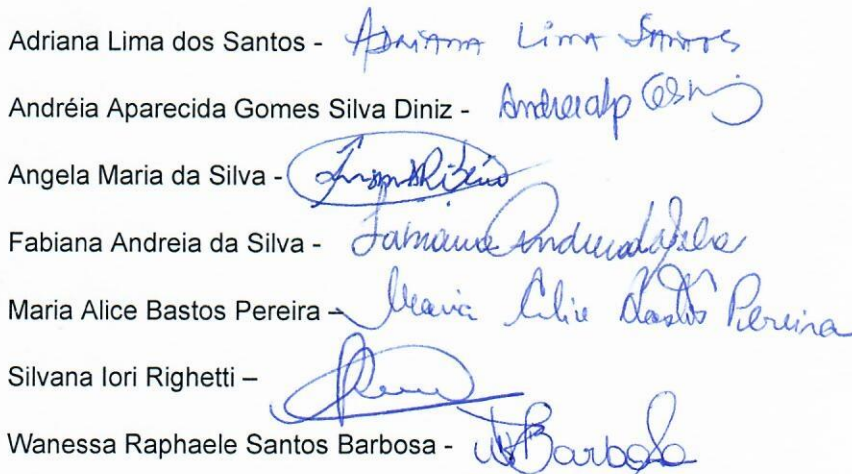 Adriana Lima dos Santos - Adriana Lima Santos
Andréia Aparecida Gomes Silva Diniz -
Angela Maria da Silva -
Fabiana Andreia da Silva - Fabiana Andreia da Silva
Maria Alice Bastos Pereira – Maria Alice Bastos Pereira
Silvana Iori Righetti –
Wanessa Raphaele Santos Barbosa - WBarbosa